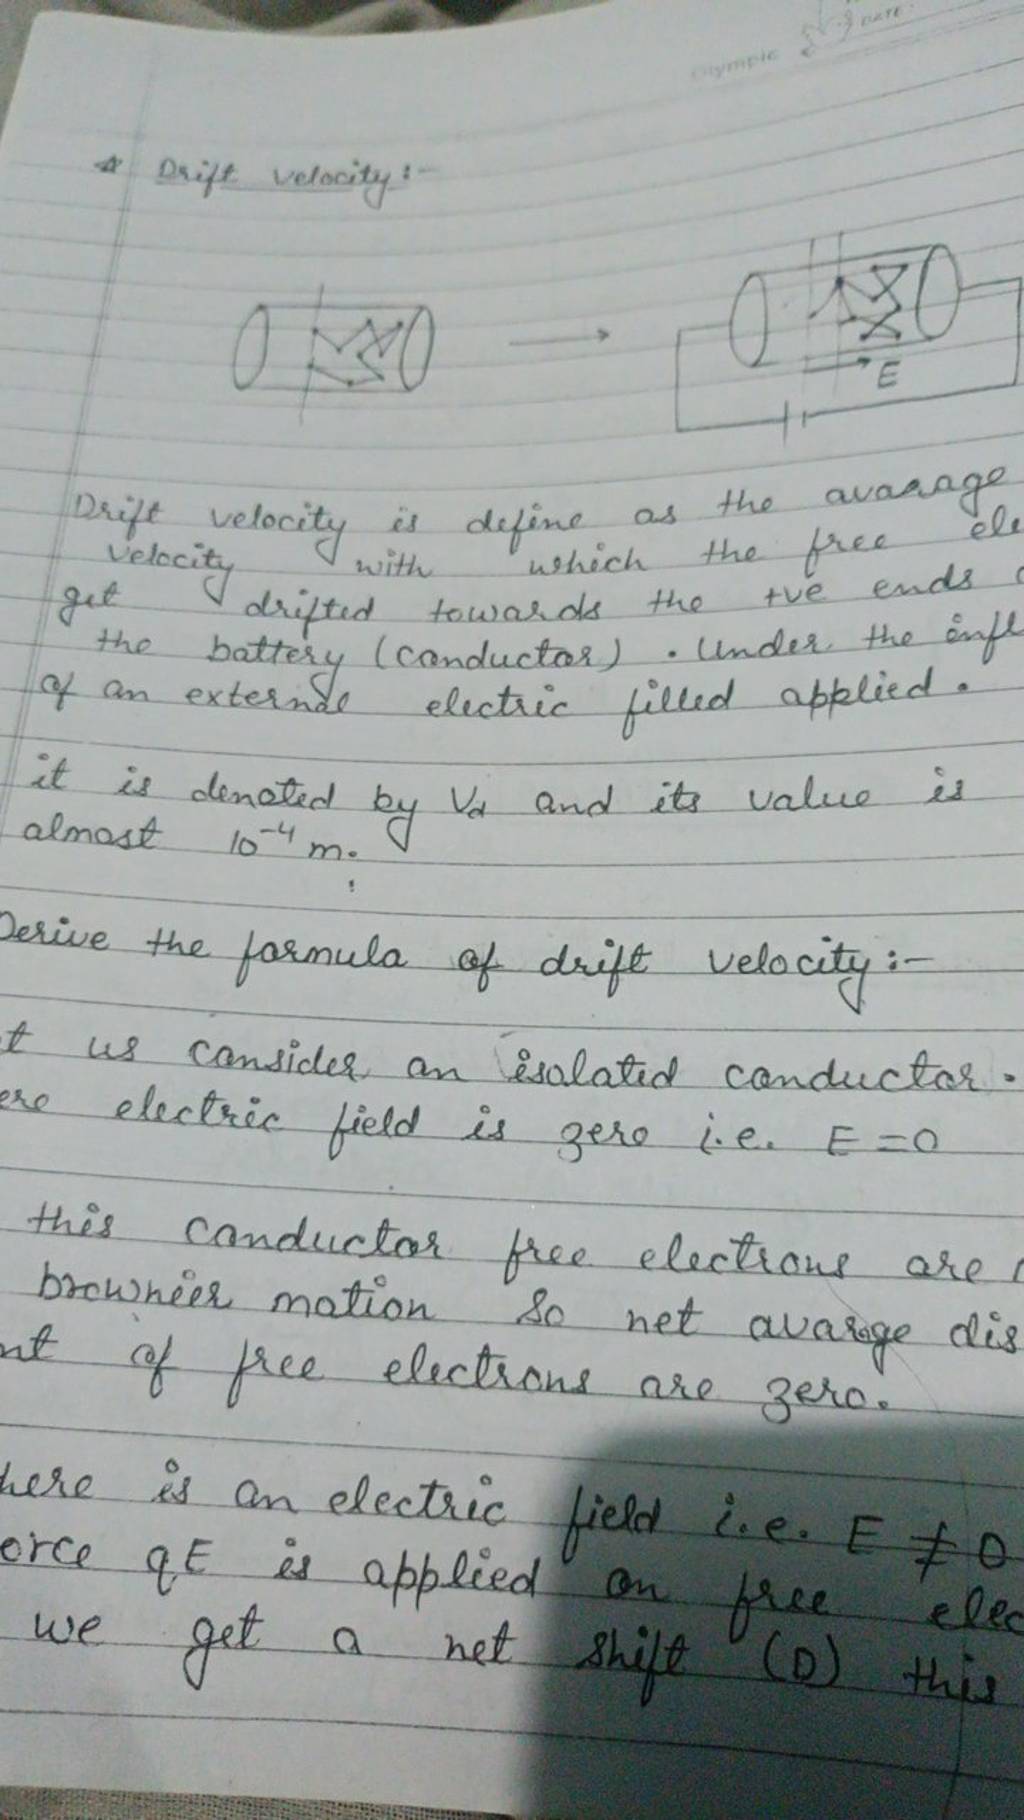 Olympic
DATE
Drift velocity :-
E
Drift velocity is define as the avarage
velocity with which the free
get drifted towards the +ve ends
the battery (conductor) . Under the
of an external electric filled applied .
it is denoted by Vd and its value is
almost 10⁻⁴ m.
Derive the formula of drift velocity :-
us consider an isolated conductor .
electric field is zero i.e. E = 0
this conductor free electrons are
brownier motion so net avarge
of free electrons are zero.
is an electric field i.e. E ≠ 0
qE is applied on free
we get a net shift (D) this